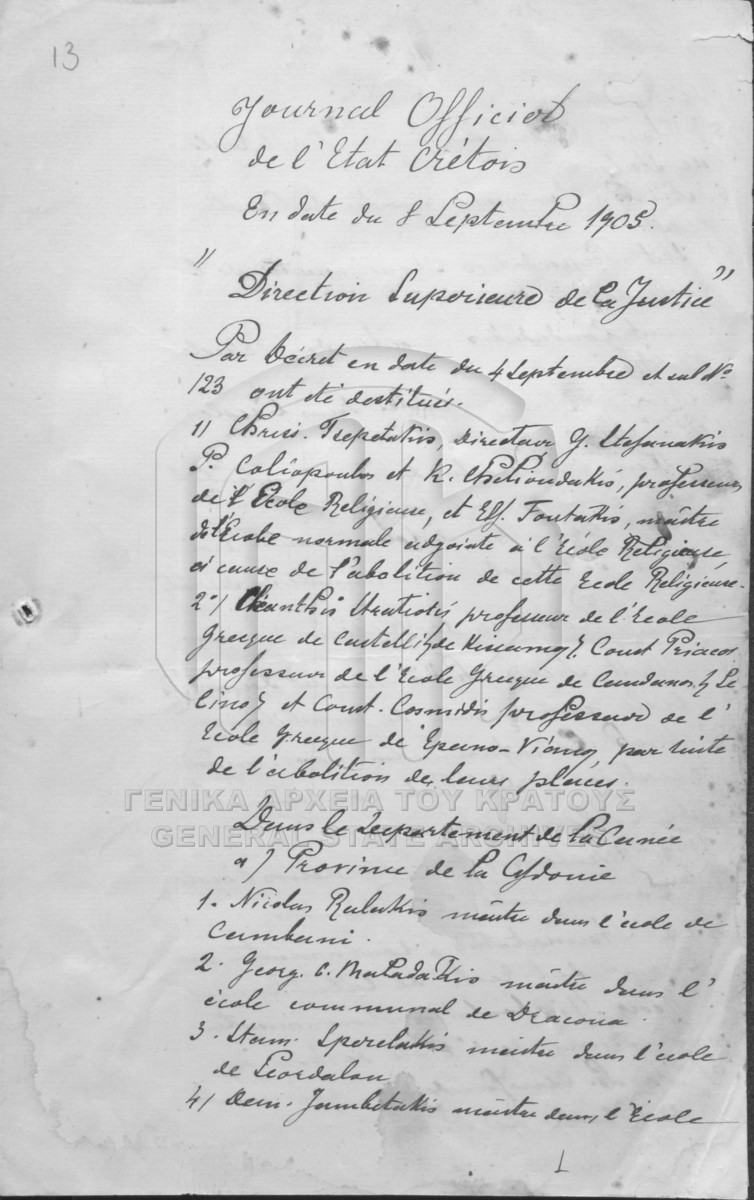 13
Journal Officiel
de l'Etat Crétois
En date du 8 Septembre 1905.
" Direction Superieure de la Justice "
Par Décret en date du 4 Septembre et sub No
123 ont été destitués.
1) Chris. Tsepetakis, Directeur G. Stefanakis
P. Caliopoulos et K. professeurs
de l'École Religieuse, et Elf. Foutakis, maître
de l'École normale adjointe à l'École Religieuse
à cause de l'abolition de cette Ecole Religieuse.
2o) Stratiotis professeur de l'Ecole
Grecque de Castelli (de Kissamo). Const Priacos
professeur de l'Ecole Grecque de Candanos (Se
lino) et Const. Cosmidis professeur de l'
Ecole grecque de Epano-Viano, par suite
de l'abolition de leurs places.
ΓΕΝΙΚΑ ΑΡΧΕΙΑ ΤΟΥ ΚΡΑΤΟΥΣ
GENERAL STATE ARCHIVES
Dans le Departement de la Canée
a) Province de la Cydonie
1. Nicolas Ralakis maître dans l'école de
Cambani.
2. Georg. C. Maladakis maître dans l'
école communal de Dracona.
3. Stam. Sperelakis maître dans l'école
de Scordalou
4) Dem. Jambetakis maître dans l'Ecole
1